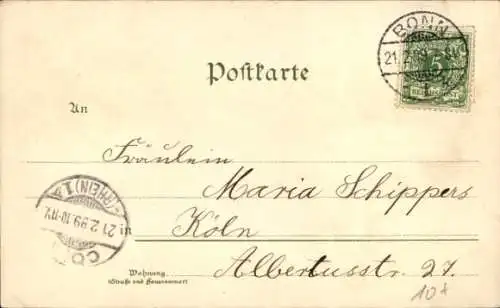 BONN
21.2.99
5
Postkarte
An
Fräulein
Maria Schippers
in Köln
Albertusstr. 27.
Wohnung
(Straße und Hausnummer)
(RHEIN) 1
21 2.99.10-11V.
CÖ
10*